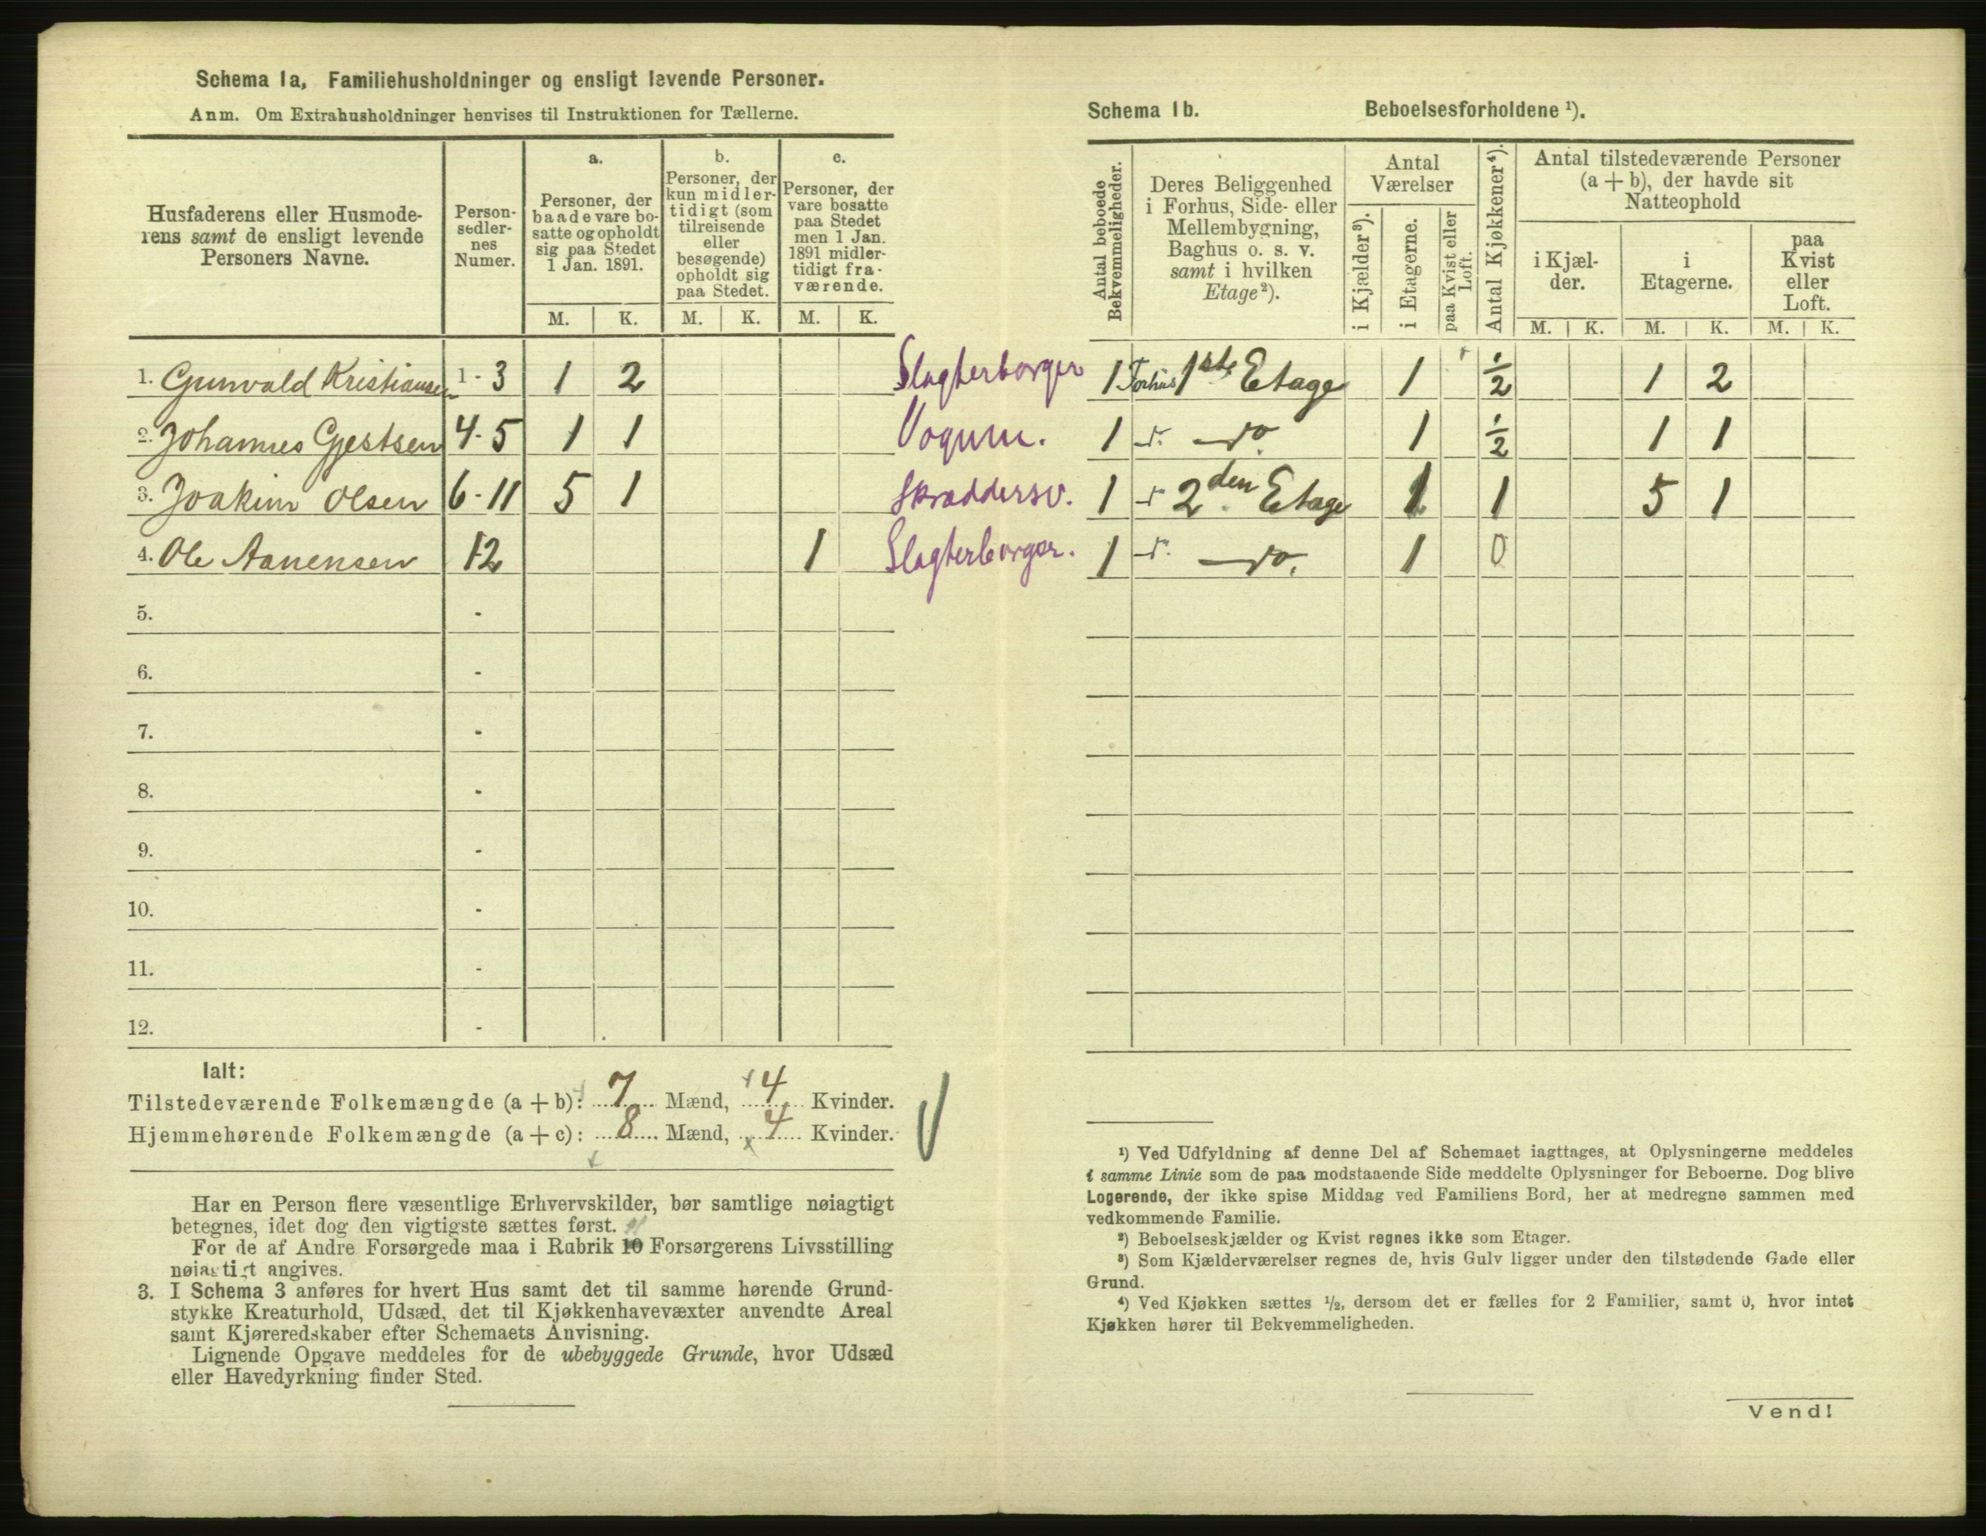 Schema 1a, Familiehusholdninger og ensligt levende Personer.
Anm. Om Extrahusholdninger henvises til Instruktionen for Tællerne.
Husfaderens eller Husmode-
rens samt de ensligt levende
Personers Navne.
Person-
sedler-
nes
Numer.
a.
Personer, der
baade vare bo-
satte og opholdt
sig paa Stedet
1 Jan. 1891.
b.
Personer, der
kun midler-
tidigt (som
tilreisende
eller
besøgende)
opholdt sig
paa Stedet.
c.
Personer, der
vare bosatte
paa Stedet
men 1 Jan.
1891 midler-
tidigt fra-
værende.
M. K. M. K. M. K.
1. Gunvald Kristiansen 1-3 1 2 Slagterborger
2. Johannes Gjertsen 4-5 1 1
3. Joakim Olsen 6-11 5 1 Skræddersv.
4. Ole Aanensen 12 1 Slagterborger.
5. -
6. -
7. -
8. -
9. -
10. -
11. -
12. -
Ialt:
Tilstedeværende Folkemængde (a + b): 7 Mænd, 4 Kvinder.
Hjemmehørende Folkemængde (a + c): 8 Mænd, 4 Kvinder.
Har en Person flere væsentlige Erhvervskilder, bør samtlige nøiagtigt
betegnes, idet dog den vigtigste sættes først.
For de af Andre Forsørgede maa i Rubrik 10 Forsørgerens Livsstilling
nøiagtigt angives.
3. I Schema 3 anføres for hvert Hus samt det til samme hørende Grund-
stykke Kreaturhold, Udsæd, det til Kjøkkenhavevæxter anvendte Areal
samt Kjøreredskaber efter Schemaets Anvisning.
Lignende Opgave meddeles for de ubebyggede Grunde, hvor Udsæd
eller Havedyrkning finder Sted.
Schema 1b. Beboelsesforholdene ¹).
Antal beboede
Bekvemmeligheder.
Deres Beliggenhed
i Forhus, Side- eller
Mellembygning,
Baghus o. s. v.
samt i hvilken
Etage²).
Antal
Værelser
i Kjælder³).
i Etagerne.
paa Kvist eller
Loft.
Antal Kjøkkener⁴).
Antal tilstedeværende Personer
(a + b), der havde sit
Natteophold
i Kjæl-
der.
i
Etagerne.
paa
Kvist
eller
Loft.
M. K. M. K. M. K.
1 Forhus 1ste Etage 1 1/2 1 2
1 do. 1 1/2 1 1
1 2den Etage 1 1 5 1
1 do. 1 0
¹) Ved Udfyldning af denne Del af Schemaet iagttages, at Oplysningerne meddeles
i samme Linie som de paa modstaaende Side meddelte Oplysninger for Beboerne. Dog blive
Logerende, der ikke spise Middag ved Familiens Bord, her at medregne sammen med
vedkommende Familie.
²) Beboelseskjælder og Kvist regnes ikke som Etager.
³) Som Kjælderværelser regnes de, hvis Gulv ligger under den tilstødende Gade eller
Grund.
⁴) Ved Kjøkken sættes ½, dersom det er fælles for 2 Familier, samt 0, hvor intet
Kjøkken hører til Bekvemmeligheden.
Vend!